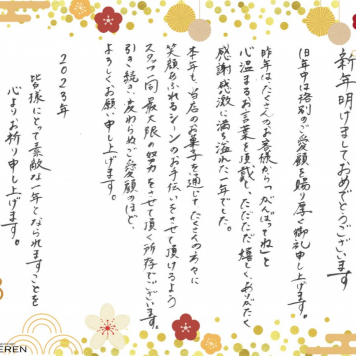 新年明けましておめでとうございます
旧年中は格別のご愛顧を賜り厚く御礼申し上げます。
昨年はたくさんのお客様から「がんばってね」と
心温まるお言葉を頂戴し、ただただ嬉しく、ありがたく
感謝感激に満ち溢れた一年でした。
本年も、当店のお菓子を通じてたくさんの方々に
笑顔あふれるシーンのお手伝いをさせて頂けるよう
スタッフ一同 最大限の努力をさせて頂く所存でございます。
引き続き、変わらぬご愛顧のほど、
よろしくお願い申し上げます。
2023年
皆様にとって素敵な一年となられますことを
心よりお祈り申し上げます。
EREN